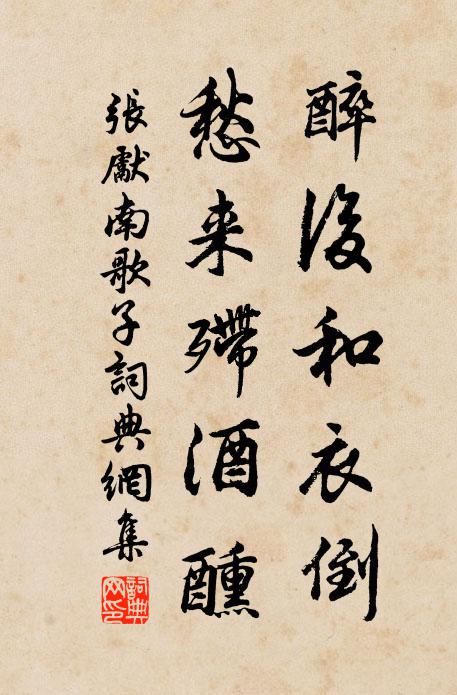 醉後和衣倒
愁来殢酒醺
張獻南歌子詞典網集
詞典网印